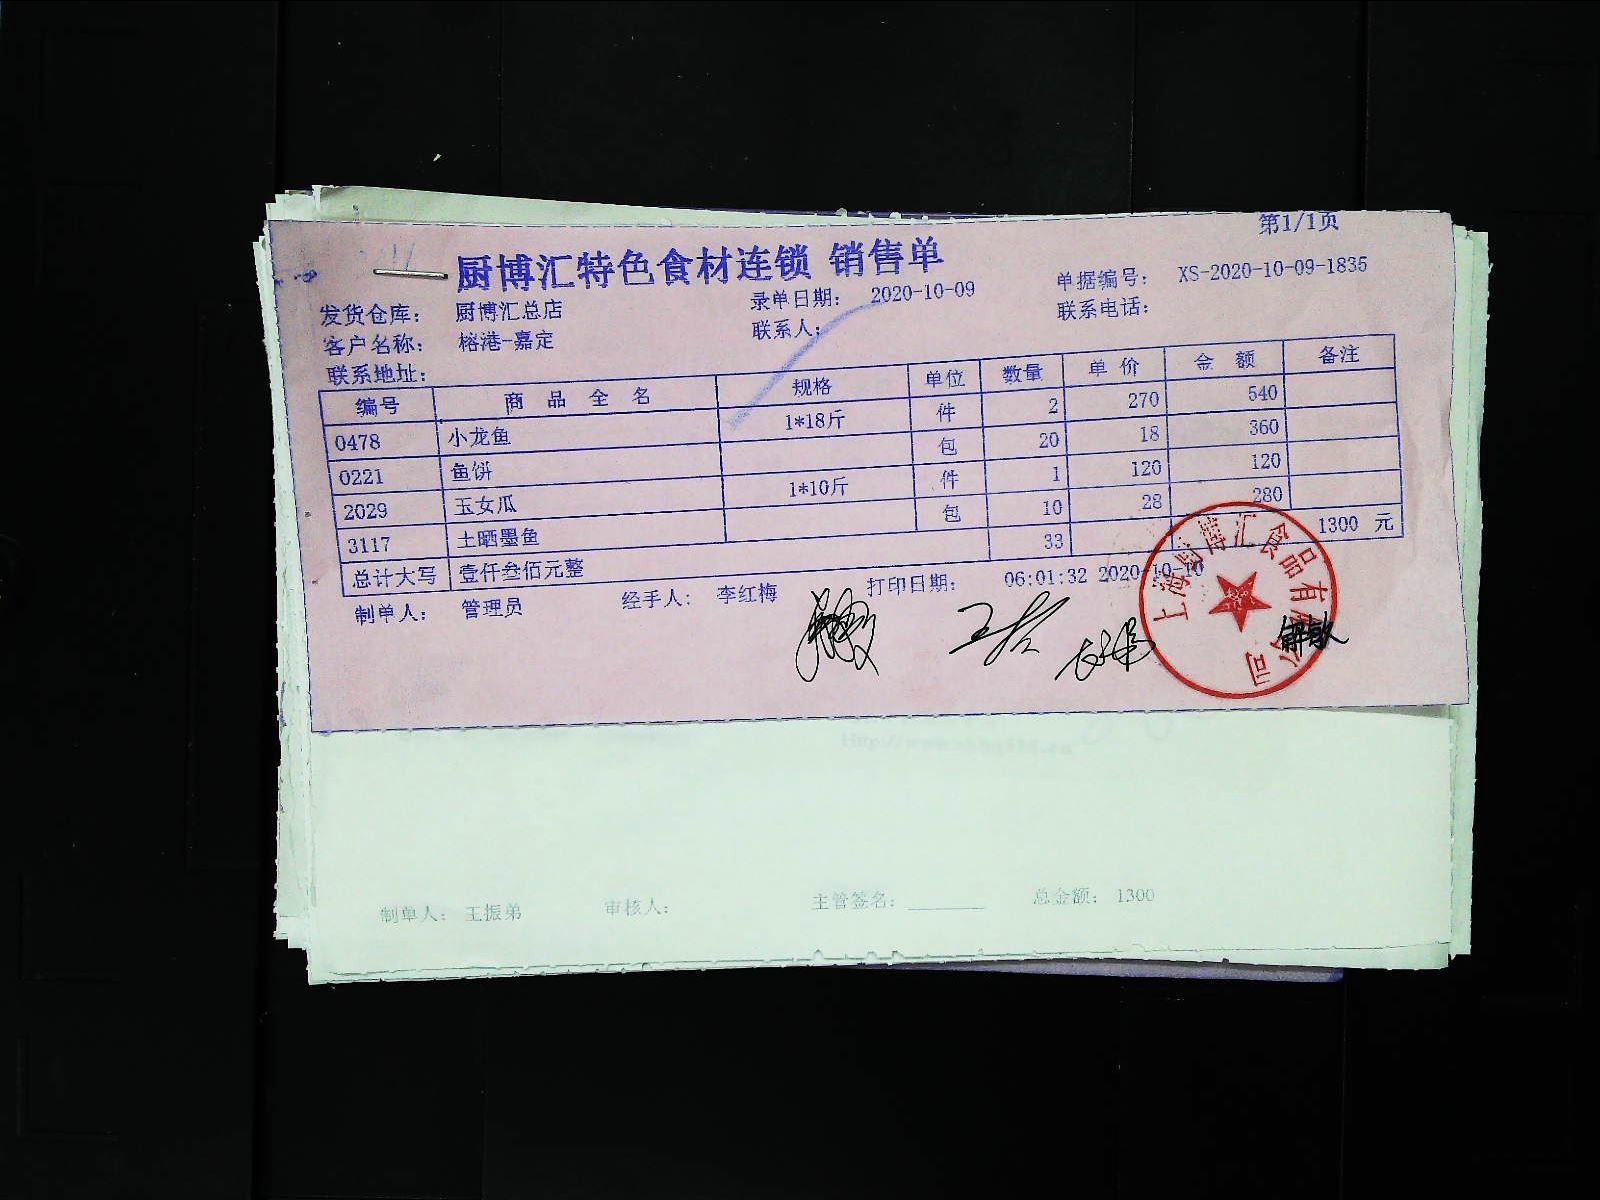 第1/1页
厨博汇特色食材连锁 销售单
发货仓库: 厨博汇总店 录单日期: 2020-10-09 单据编号: XS-2020-10-09-1835
客户名称: 榕港-嘉定 联系人: 联系电话:
联系地址:
编号 商品全名 规格 单位 数量 单价 金额 备注
0478 小龙鱼 1*18斤 件 2 270 540
0221 鱼饼 包 20 18 360
2029 玉女瓜 1*10斤 件 1 120 120
3117 土晒墨鱼 包 10 28 280
总计大写 壹仟叁佰元整 33 1300 元
制单人: 管理员 经手人: 李红梅 打印日期: 06:01:32 2020-10-10
上海厨博汇食品有限公司
制单人: 王振弟 审核人: 主管签名: 总金额: 1300